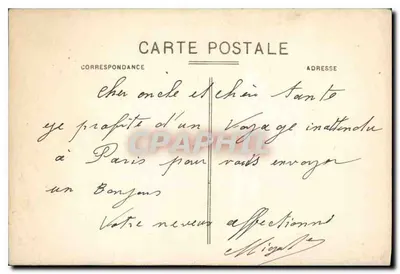 CARTE POSTALE
CORRESPONDANCE ADRESSE
Cher oncle et chère tante
je profite d'un Voyage inattendu
à Paris pour vous envoyer
un Bonjour
Votre neveux affectionné